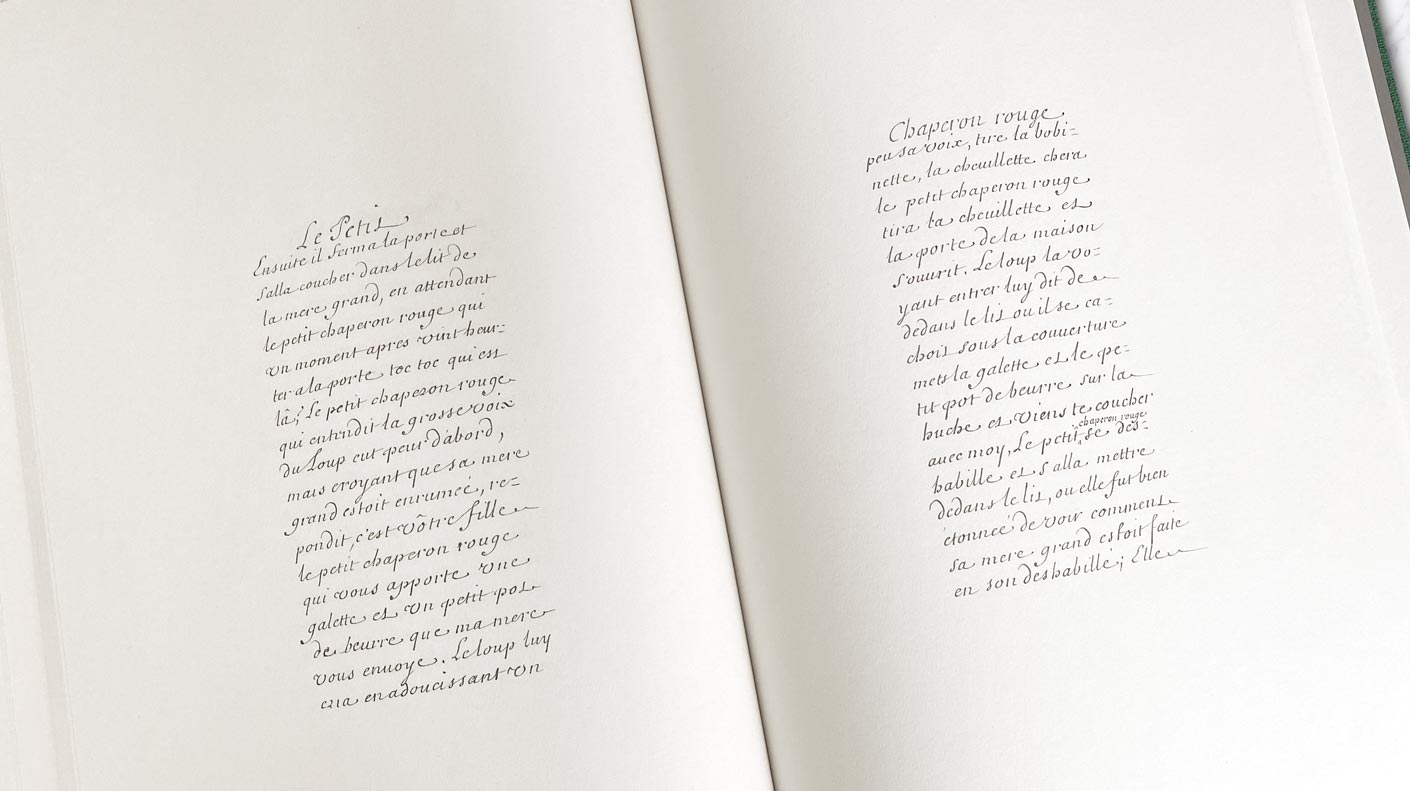 Le Petit
Ensuite il ferma la porte et
s'alla coucher dans le lit de
la mere grand, en attendant
le petit chaperon rouge qui
un moment apres vint heur=
ter a la porte toc toc qui est
là? Le petit chaperon rouge
qui entendit la grosse voix
du Loup eut peur d'abord,
mais croyant que sa mere
grand estoit enrumée, re=
pondit, c'est vôtre fille
le petit chaperon rouge
qui vous apporte une
galette et un petit pot
de beurre que ma mere
vous enuoye. Le loup luy
cria en adoucissant un
Chaperon rouge
peu sa voix, tire la bobi=
nette, la cheuillette chera
le petit chaperon rouge
tira la cheuillette et
la porte de la maison
s'ouurit. Le loup la vo=
yant entrer luy dit de
dedans le lit ou il se ca=
choit sous la couuerture
mets la galette et le pe=
tit pot de beurre sur la
huche et viens te coucher
auec moy, Le petit chaperon rouge se des=
habille et s'alla mettre
dedans le lit, ou elle fut bien
étonneé de voir comment
sa mere grand estoit faite
en son deshabillé; Elle